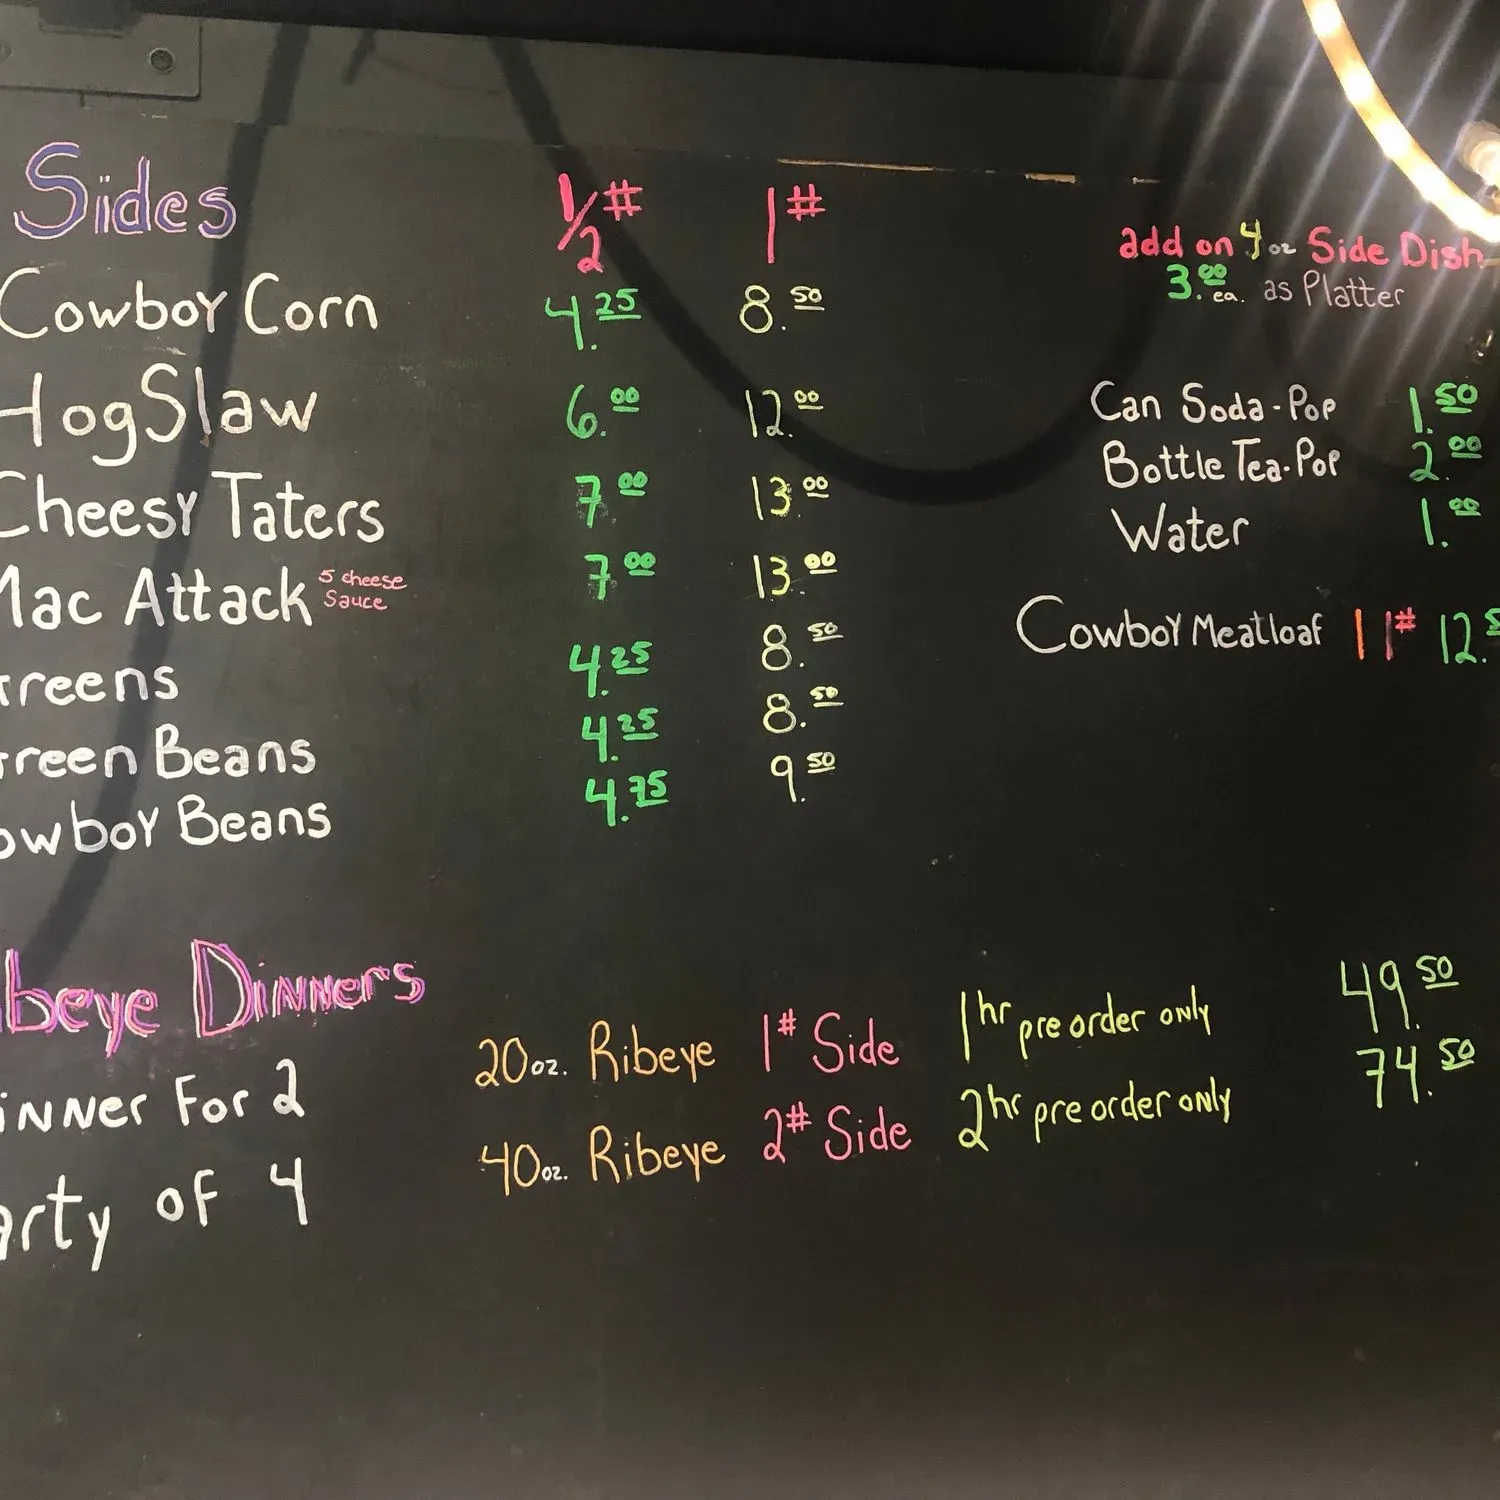 Sides 1/2# 1#
Cowboy Corn 4.25 8.50
HogSlaw 6.00 12.00
Cheesy Taters 7.00 13.00
Mac Attack 5 cheese Sauce 7.00 13.00
reens 4.25 8.50
reen Beans 4.25 8.50
owboy Beans 4.75 9.50
add on 4 oz Side Dish
3.00 ea. as Platter
Can Soda-Pop 1.50
Bottle Tea-Pop 2.00
Water 1.00
Cowboy Meatloaf 1# 12.5
beye Dinners
inner For 2 20 oz. Ribeye 1# Side 1hr pre order only 49.50
arty of 4 40 oz. Ribeye 2# Side 2hr pre order only 74.50